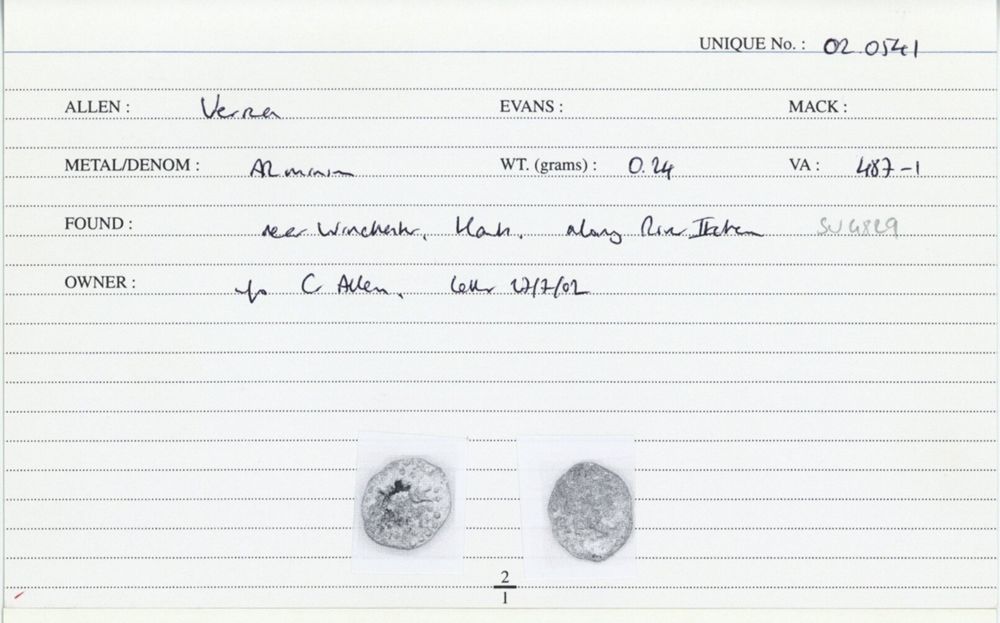 UNIQUE No. : 02.0541
ALLEN : Verica EVANS : MACK :
METAL/DENOM : AR minim WT. (grams) : 0.24 VA : 487-1
FOUND : near Winchester, Hants. along River Itchen SU4829
OWNER : C Allen, letter 17/7/02
2
1